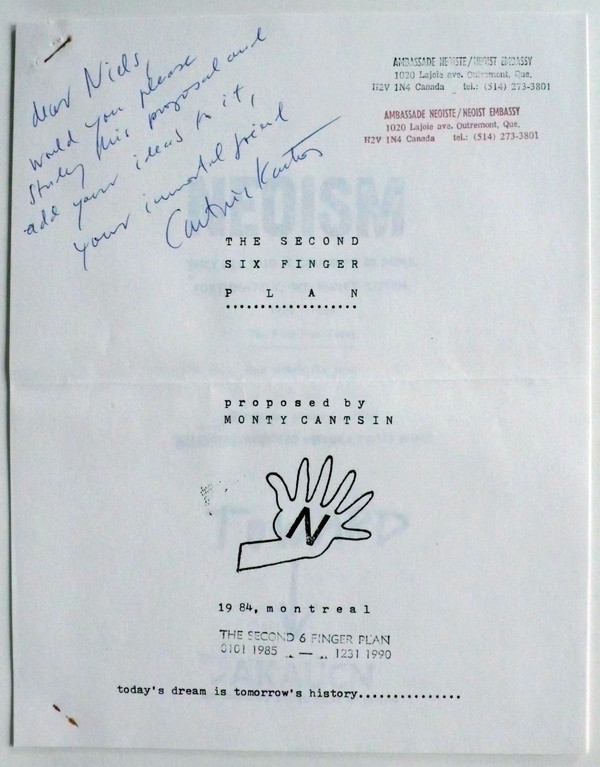 dear Niels,
would you please
study this proposal and
add your ideas to it,
your immortal friend
Cantsin Kantor
AMBASSADE NEOISTE/NEOIST EMBASSY
1020 Lajoie ave. Outremont, Que.
H2V 1N4 Canada tel.: (514) 273-3801
AMBASSADE NEOISTE/NEOIST EMBASSY
1020 Lajoie ave. Outremont, Que.
H2V 1N4 Canada tel.: (514) 273-3801
NEOISM
THE SECOND
SIX FINGER
PLAN
proposed by
MONTY CANTSIN
N
1984, montreal
THE SECOND 6 FINGER PLAN
0101 1985 — 1231 1990
today's dream is tomorrow's history...............